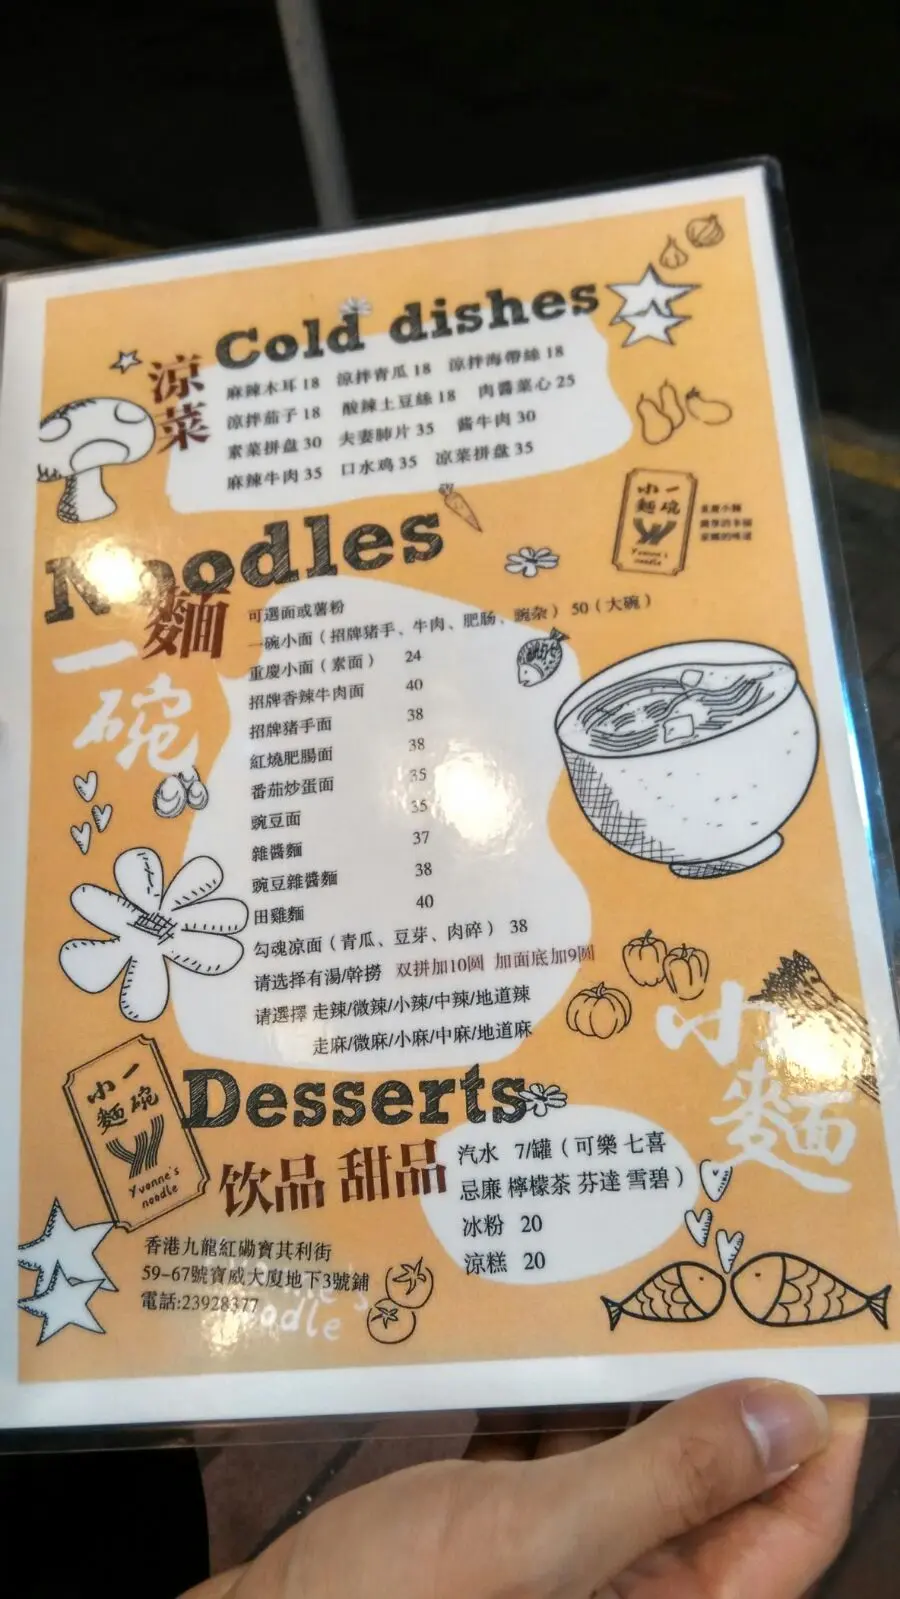 Cold dishes
涼菜
麻辣木耳 18 涼拌青瓜 18 涼拌海帶絲 18
涼拌茄子 18 酸辣土豆絲 18 肉醬菜心 25
素菜拼盘 30 夫妻肺片 35 酱牛肉 30
麻辣牛肉 35 口水鸡 35 凉菜拼盘 35
一碗小麵
Yvonne's noodle
重慶小麵
Noodles
麵
一碗
可選面或薯粉
一碗小面（招牌猪手、牛肉、肥肠、豌杂）50（大碗）
重慶小面（素面） 24
招牌香辣牛肉面 40
招牌猪手面 38
紅燒肥腸面 38
番茄炒蛋面 35
豌豆面 35
雜醬麵 37
豌豆雜醬麵 38
田雞麵 40
勾魂凉面（青瓜、豆芽、肉碎） 38
请选择有湯/幹撈 双拼加10圓 加面底加9圓
请選擇 走辣/微辣/小辣/中辣/地道辣
走麻/微麻/小麻/中麻/地道麻
小麵
Desserts
饮品 甜品
汽水 7/罐（可樂 七喜
忌廉 檸檬茶 芬達 雪碧）
冰粉 20
涼糕 20
一碗小麵
Yvonne's noodle
香港九龍紅磡寶其利街
59-67號寶威大廈地下3號鋪
電話:23928377
noodle